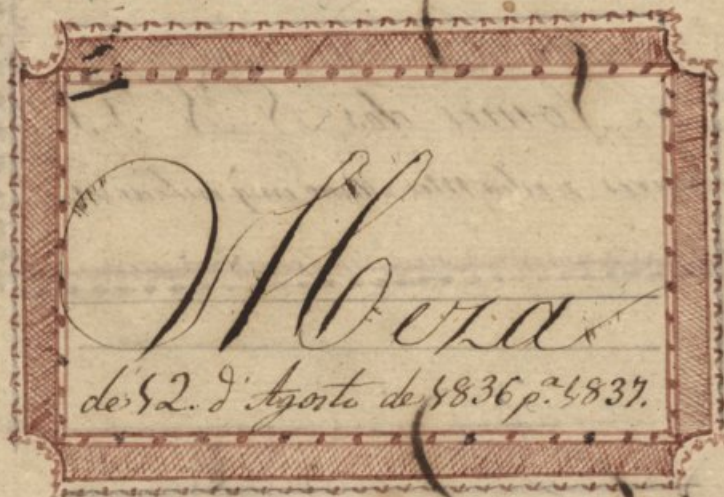 Meza
de 12. d' Agosto de 1836 p.ª 1837.